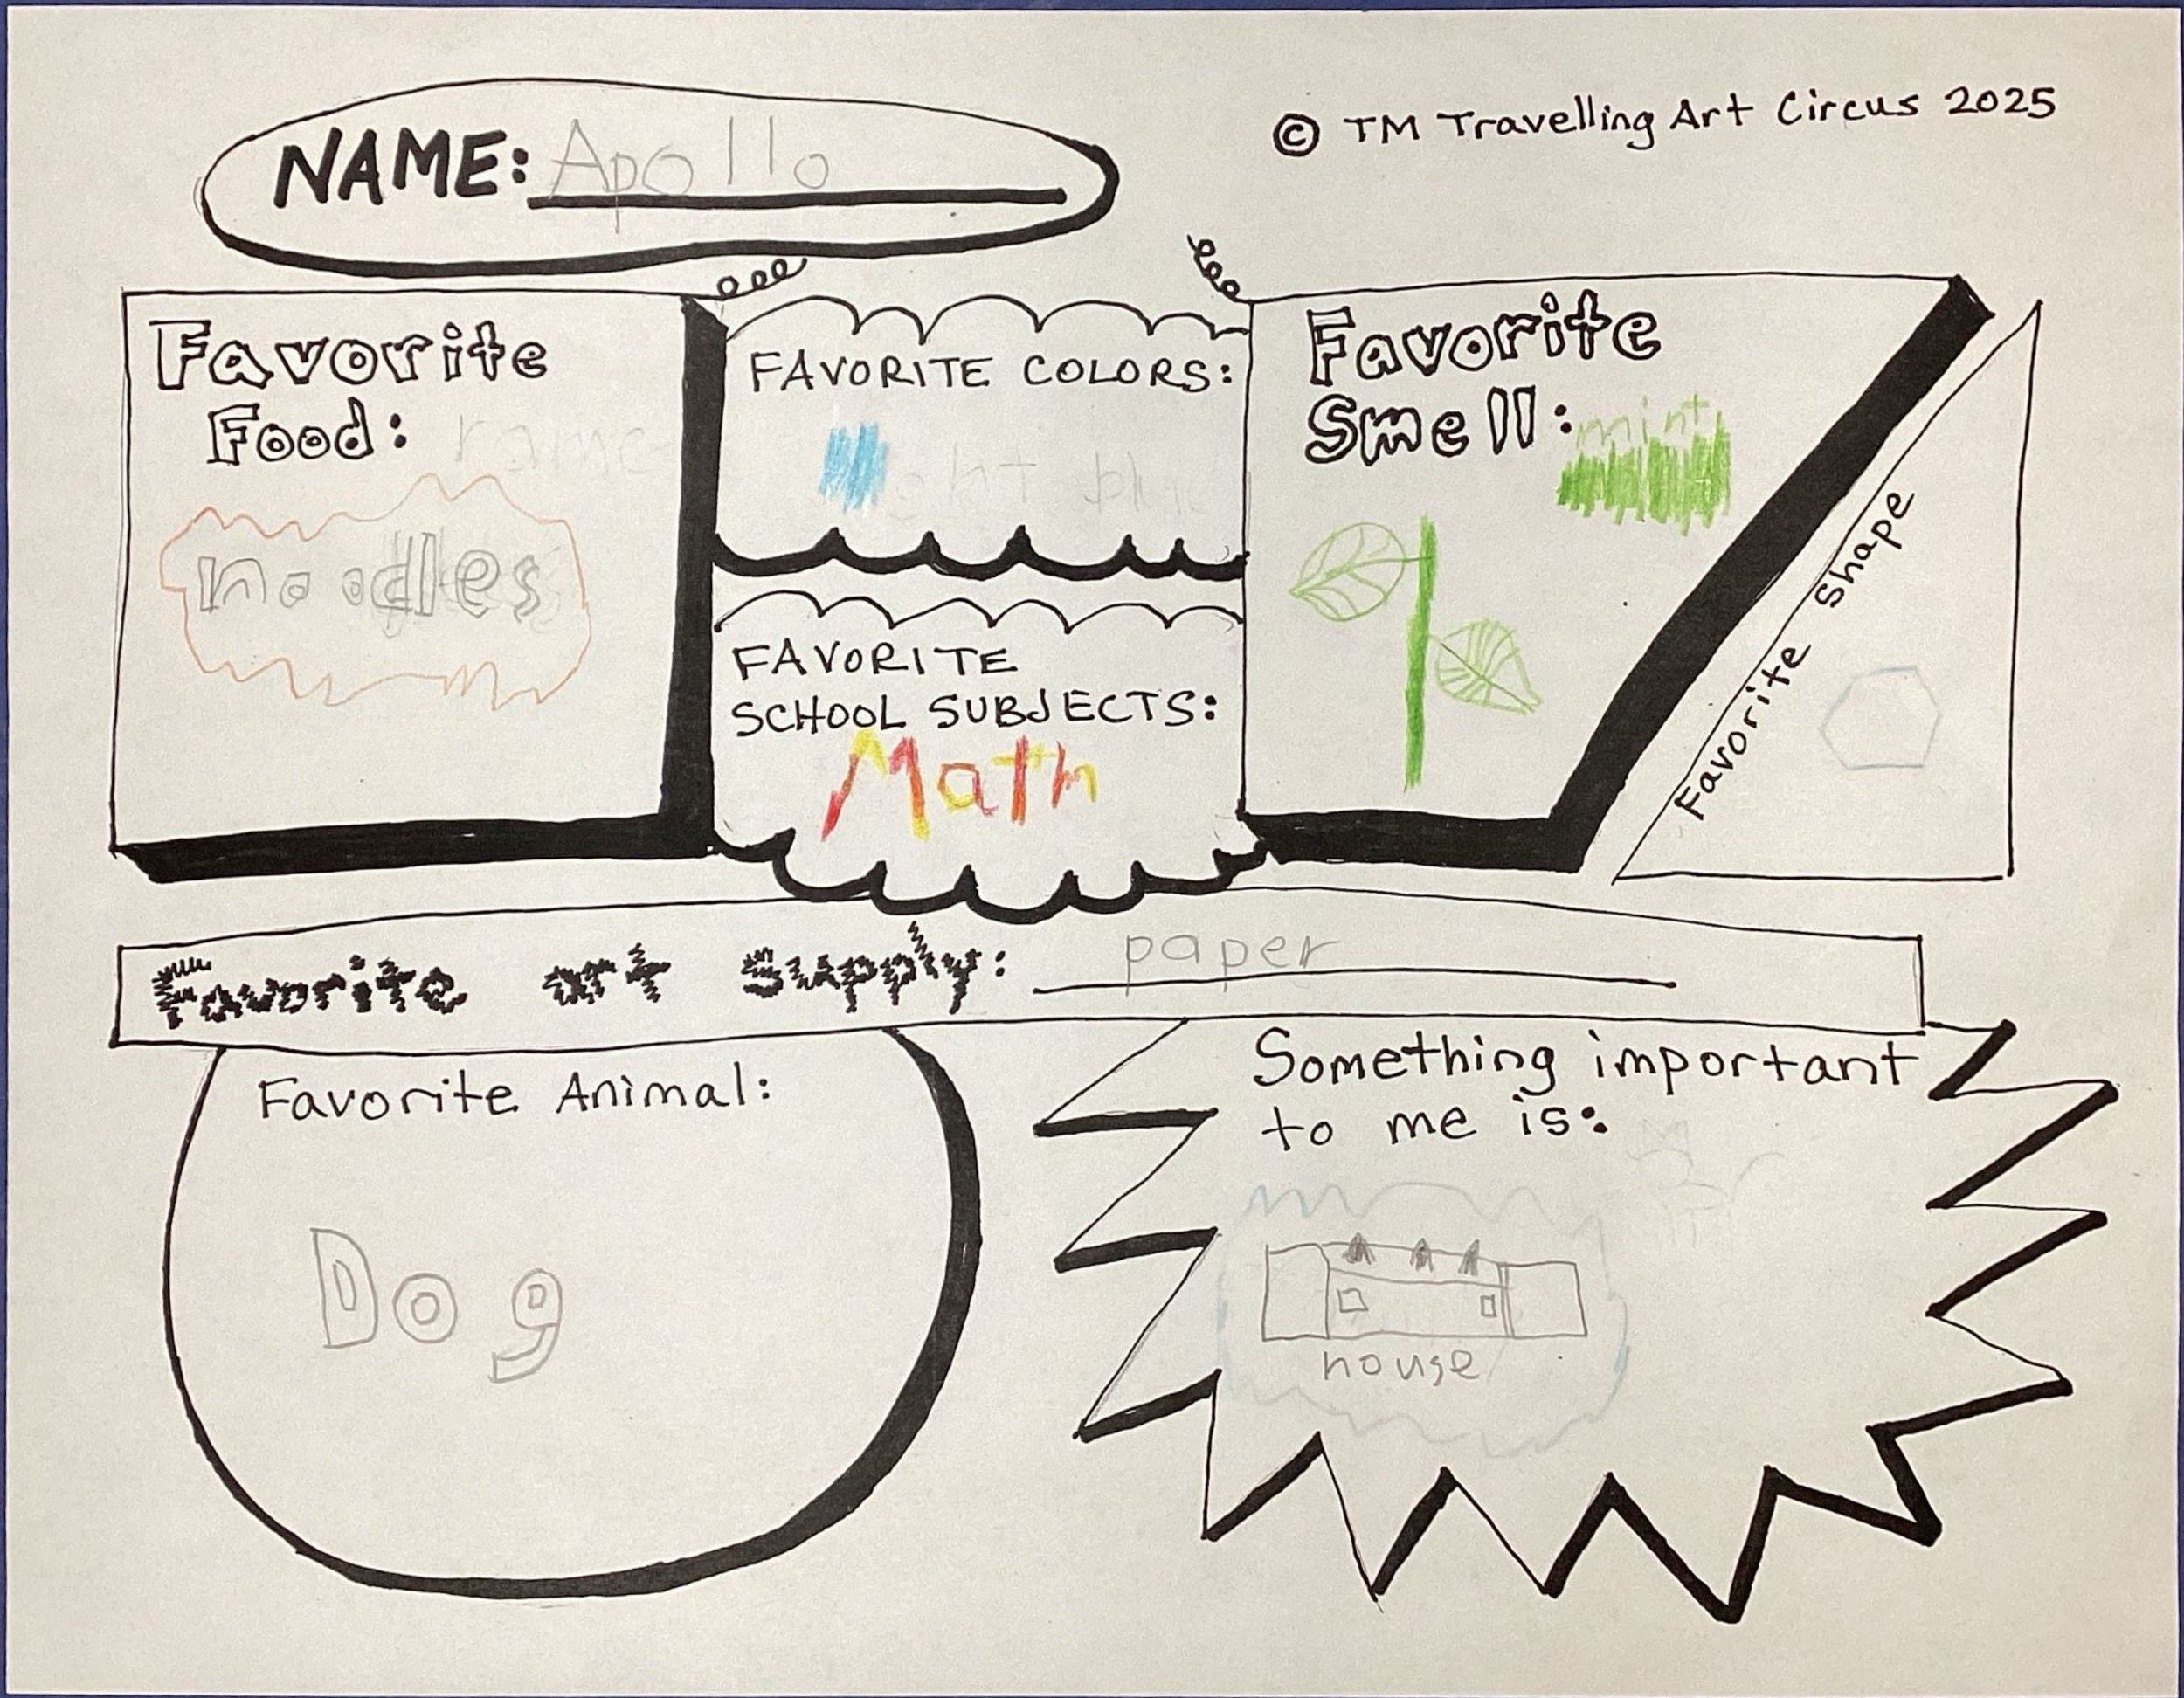 © TM Travelling Art Circus 2025
NAME: Apollo
Favorite
Food:
noodles
FAVORITE COLORS:
blue
FAVORITE
SCHOOL SUBJECTS:
Math
Favorite
Smell: mint
Favorite Shape
Favorite art supply: paper
Favorite Animal:
Dog
Something important
to me is:
house